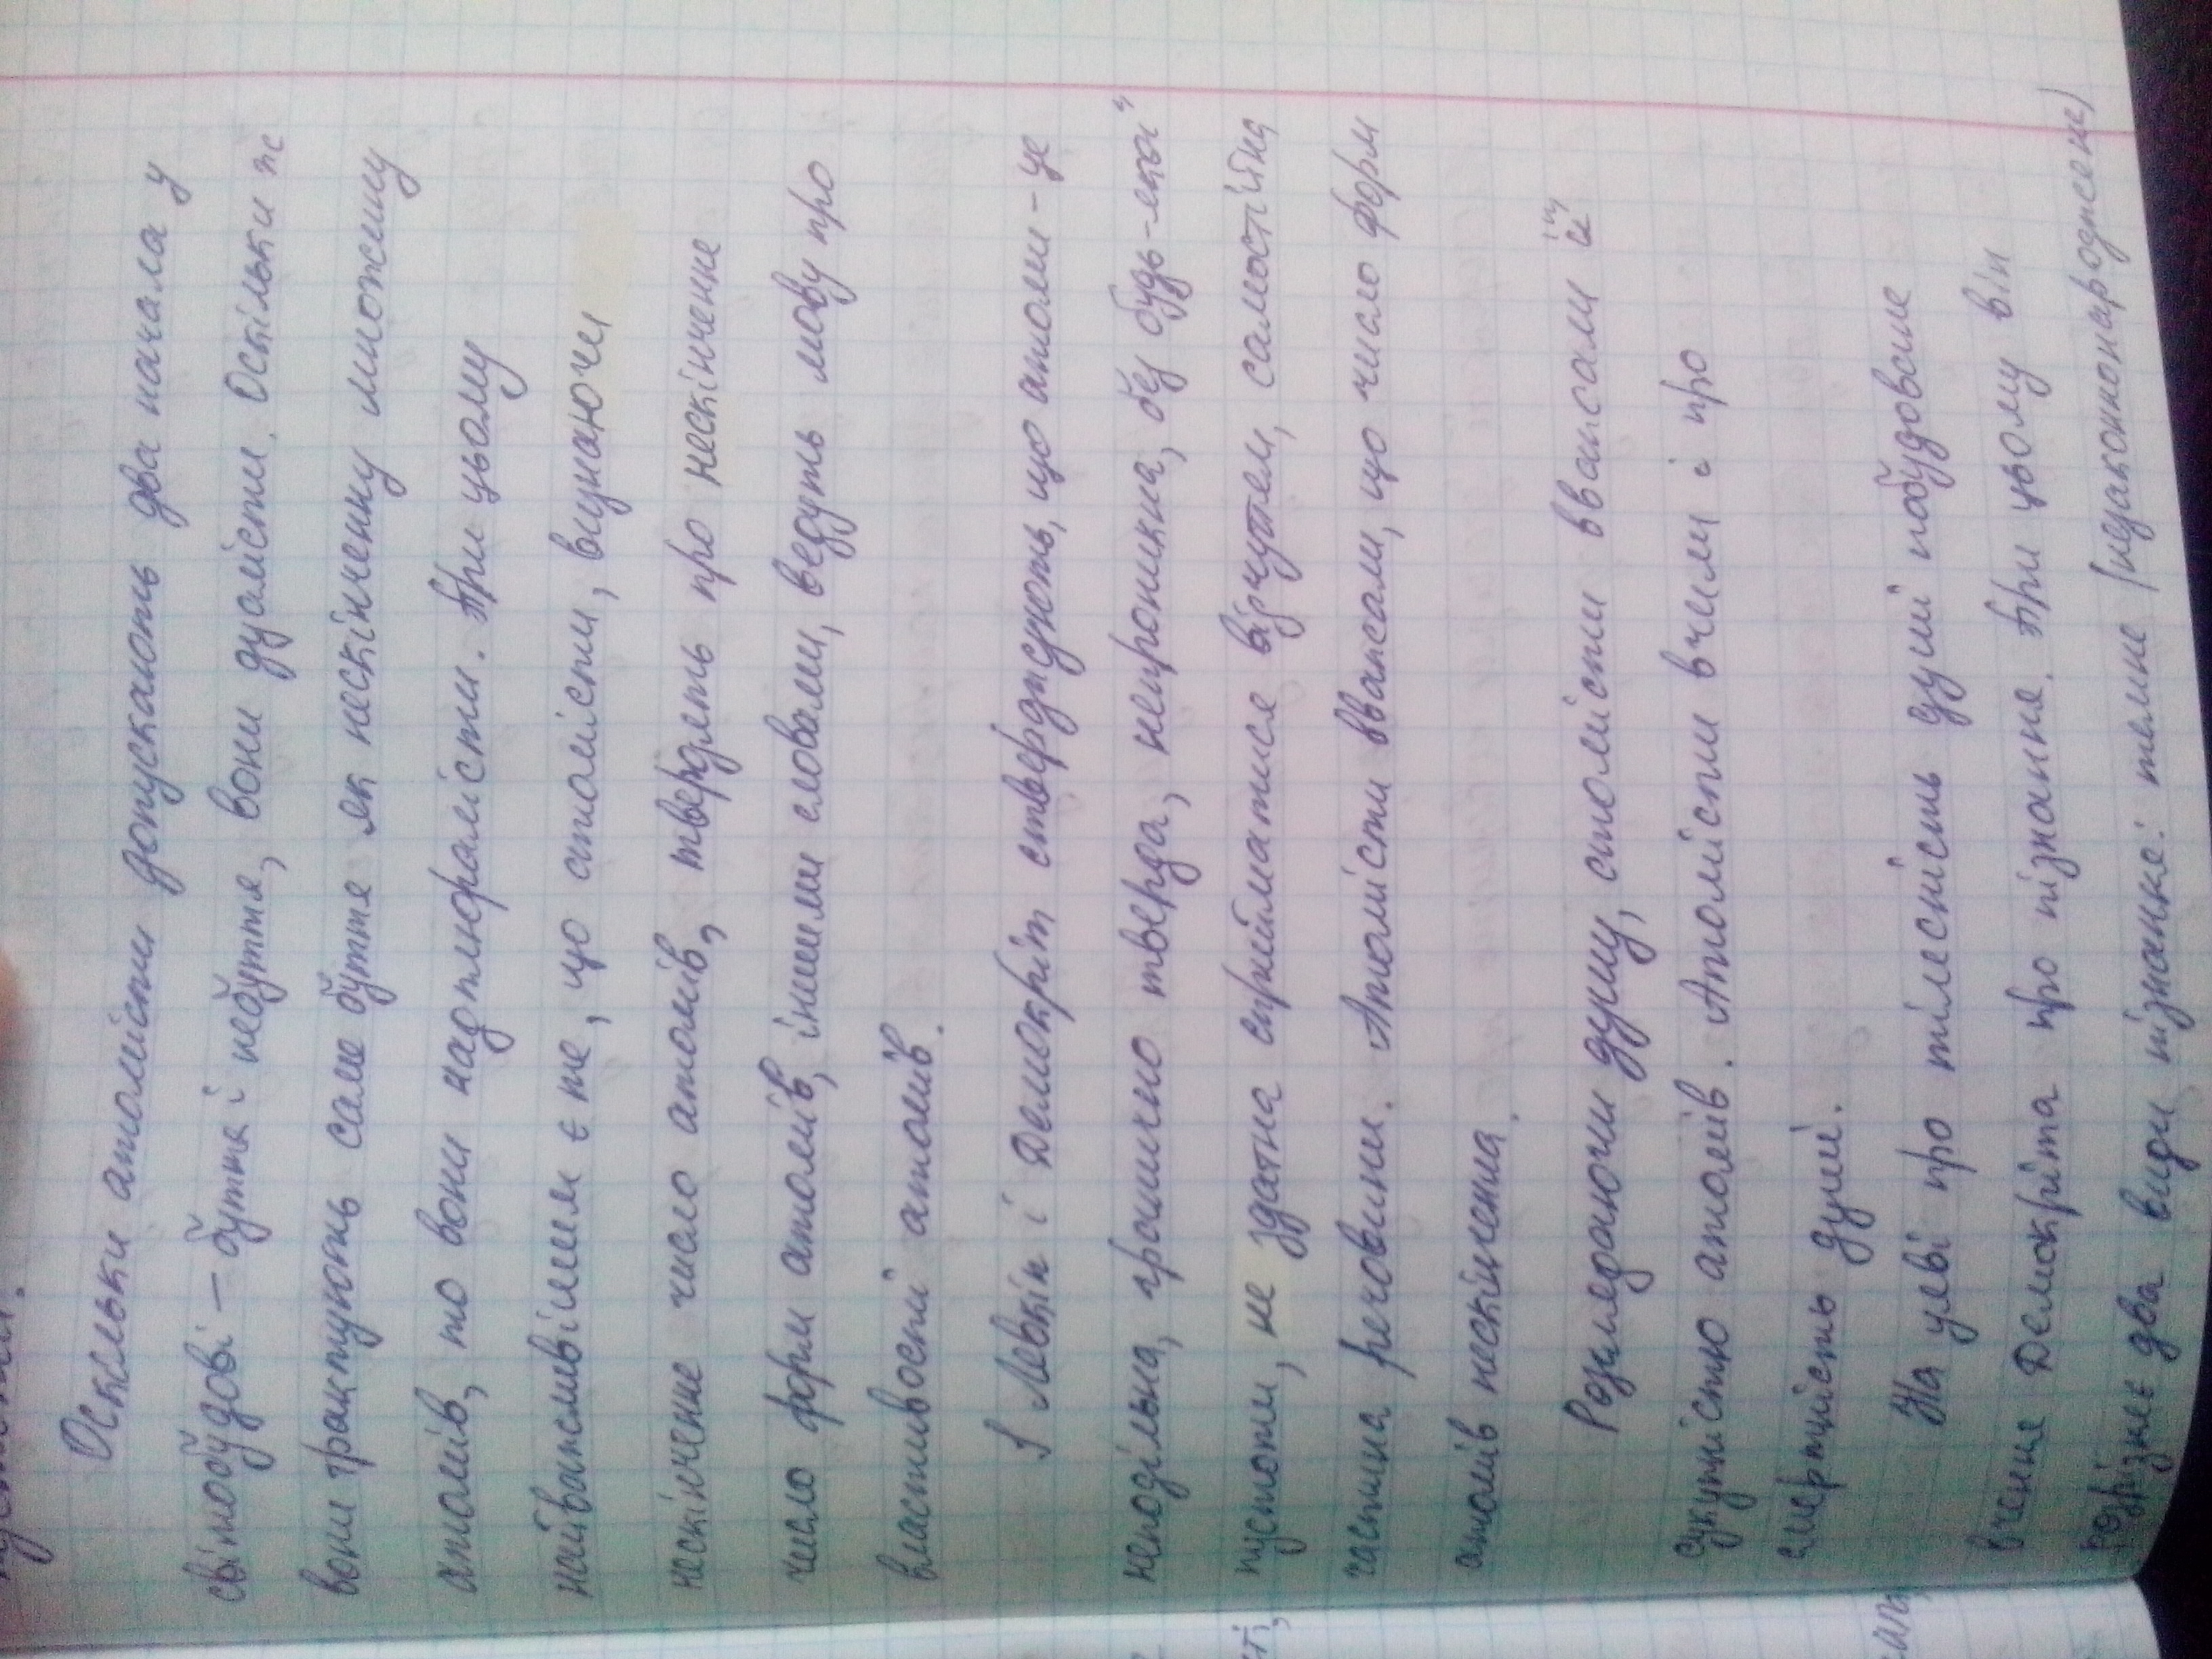 пустоти.
Оскільки атомісти допускають два начала у
світобудові – буття і небуття, вони дуалісти. Оскільки ж
вони трактують саме буття як нескінченну множину
атомів, то вони надплюралісти. При цьому
найважливішим є те, що атомісти, визнаючи
нескінченне число атомів, твердять про нескінченне
число форм атомів, іншими словами, ведуть мову про
властивості атомів.
І Левкіп і Демокріт стверджують, що атоми – це
неподільна, гранично тверда, непроникна, без будь-якої
пустоти, не здатна сприйматися відчуттям, самостійна
частина речовини. Атомісти вважали, що число форм
атомів нескінченна.
Розглядаючи душу, атомісти вважали її
сукупністю атомів. Атомісти вчили і про
смертність душі.
На уяві про тілесність душі побудоване
вчення Демокріта про пізнання. При цьому він
розрізняє два види пізнання: темне (незаконнонароджене)